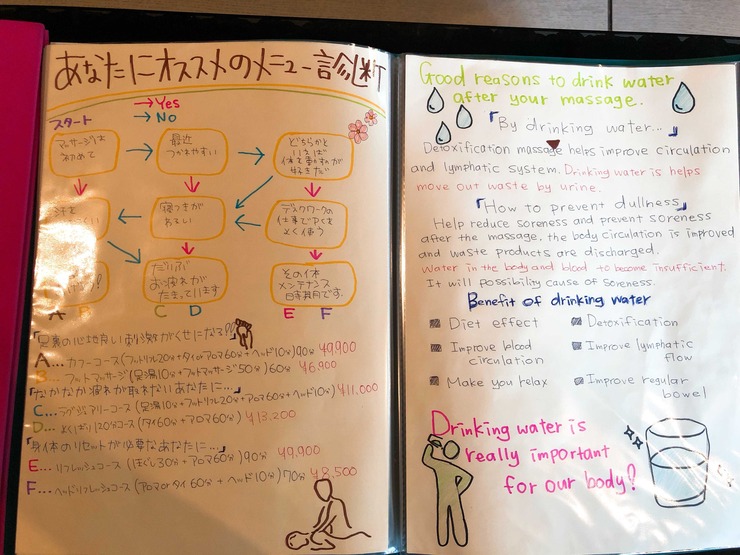 あなたにオススメのメニュー診断
→Yes
→No
スタート
マッサージは
初めて
最近
つかれやすい
どちらかと
いえば
体を動かすのが
好きだ
寝つきが
わるい
デスクワークの
仕事でPCを
よく使う
だいぶ
お疲れが
たまっています
その体
メンテナンス
時期です。
A B
C D
E F
「足裏の心地良い刺激がくせになる!?」
A... カフーコース(フットリフレ20分+タイorアロマ60分+ヘッド10分)90分 ¥9,900
B... フットマッサージ(足湯10分+フットマッサージ50分)60分 ¥6,900
「なかなか疲れが取れないあなたに...」
C... ラグジュアリーコース(足湯10分+フットリフレ20分+アロマ60分+ヘッド10分) ¥11,000
D... よくばり120分コース(タイ60分+アロマ60分) ¥13,200
「身体のリセットが必要なあなたに...」
E... リフレッシュコース(ほぐし30分+アロマ60分)90分 ¥9,900
F... ヘッドリフレッシュコース(アロマorタイ60分+ヘッド10分)70分 ¥8,500
Good reasons to drink water
after your massage.
「By drinking water...」
Detoxification massage helps improve circulation
and lymphatic system. Drinking water is helps
move out waste by urine.
「How to prevent dullness」
Help reduce soreness and prevent soreness
after the massage, the body circulation is improved
and waste products are discharged.
Water in the body and blood to become insufficient.
It will possibility cause of soreness.
Benefit of drinking water
Diet effect
Detoxification
Improve blood
circulation
Improve lymphatic
flow
Make you relax
Improve regular
bowel
Drinking water is
really important
for our body!